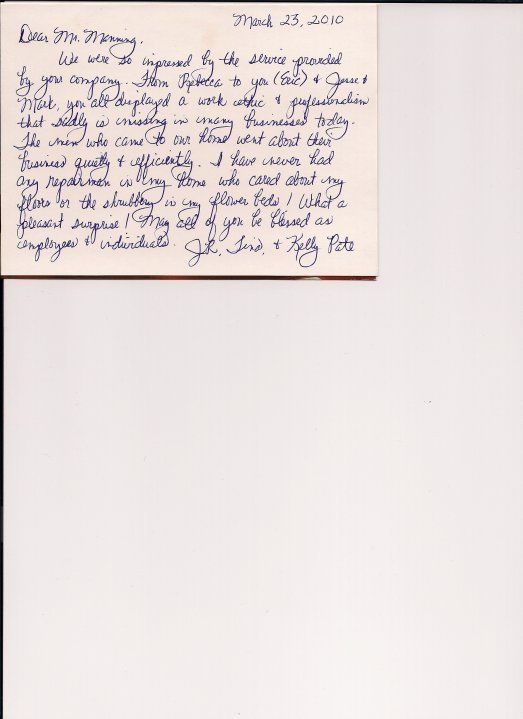 March 23, 2010
Dear Mr. Manning,
We were so impressed by the service provided
by your company. From Rebecca to you (Eric) & Jesse &
Mark, you all displayed a work ethic & professionalism
that sadly is missing in many businesses today.
The men who came to our home went about their
business quietly & efficiently. I have never had
any repairmen in my home who cared about my
floors or the shrubbery in my flower beds! What a
pleasant surprise! May all of you be blessed as
employees & individuals.
J.R., Tina, & Kelly Pate